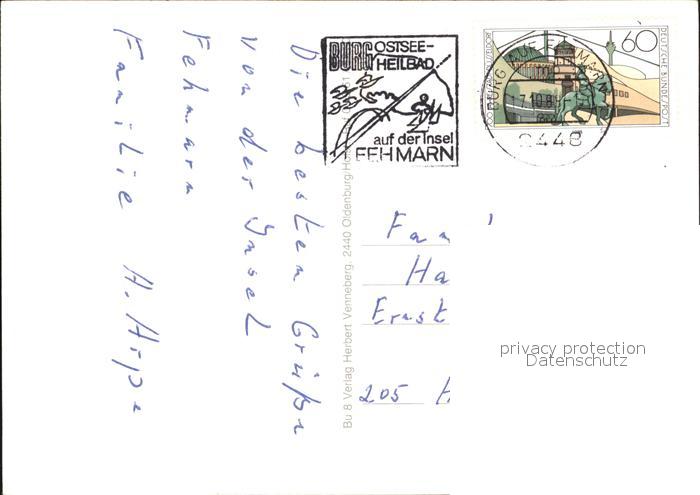 Die besten Grüße
von der Insel
Fehmarn
Familie H. Harpe
BURG OSTSEE-
HEILBAD
auf der Insel
FEHMARN
60
DEUTSCHE BUNDESPOST
BURG AUF FEHMARN
2448
Bu 8 Verlag Herbert Venneberg, 2440 Oldenburg/Holst
Fam
Ha
Ernst
205 H
privacy protection
Datenschutz